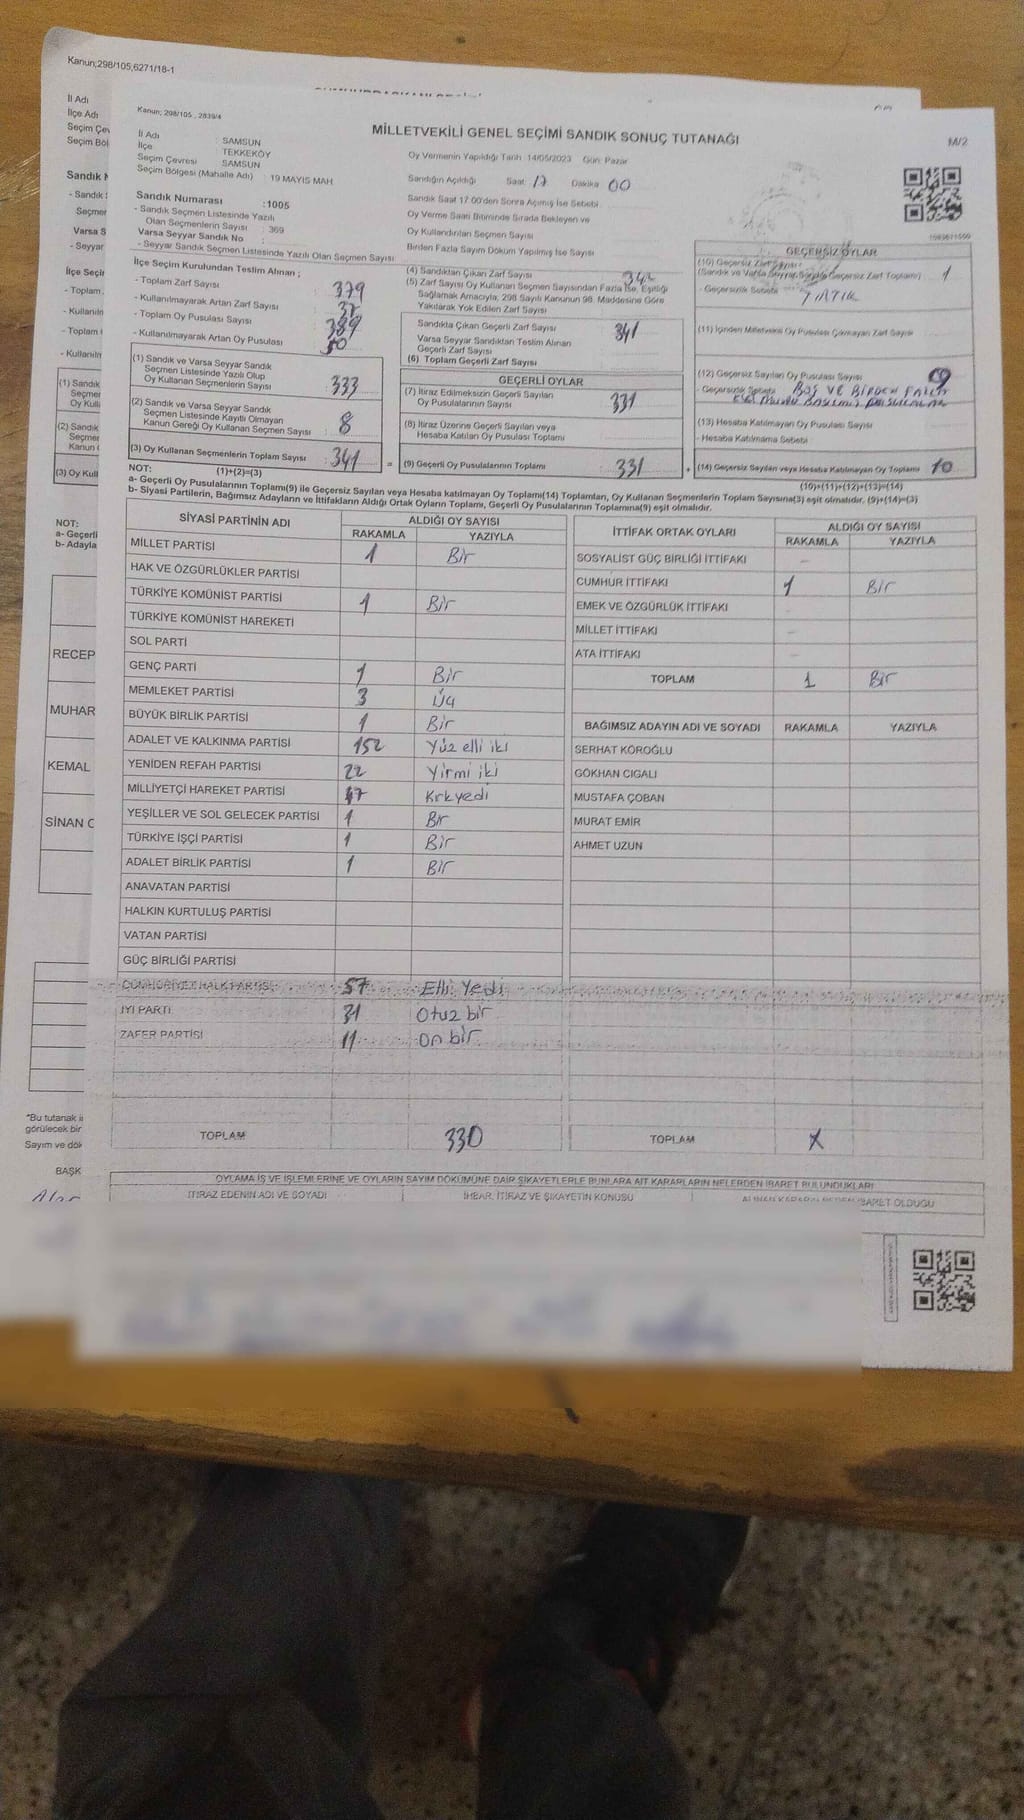 Kanun;298/105,6271/18-1
İl Adı
İlçe Adı
Seçim Çev
Seçim Böl
Kanun; 298/105 , 2839/4
MİLLETVEKİLİ GENEL SEÇİMİ SANDIK SONUÇ TUTANAĞI
M/2
İl Adı : SAMSUN
İlçe : TEKKEKÖY
Seçim Çevresi : SAMSUN
Seçim Bölgesi (Mahalle Adı) : 19 MAYIS MAH
Oy Vermenin Yapıldığı Tarih: 14/05/2023 Gün: Pazar
Sandığın Açıldığı Saat: 17 Dakika 00
Sandık Saat 17.00'den Sonra Açılmış İse Sebebi
Oy Verme Saati Bitiminde Sırada Bekleyen ve
Oy Kullandırılan Seçmen Sayısı
Birden Fazla Sayım Döküm Yapılmış İse Sayısı
Sandık Numarası :1005
- Sandık Seçmen Listesinde Yazılı
Olan Seçmenlerin Sayısı : 369
Varsa Seyyar Sandık No :
- Seyyar Sandık Seçmen Listesinde Yazılı Olan Seçmen Sayısı
İlçe Seçim Kurulundan Teslim Alınan ;
- Toplam Zarf Sayısı : 379
- Kullanılmayarak Artan Zarf Sayısı : 37
- Toplam Oy Pusulası Sayısı : 389
- Kullanılmayarak Artan Oy Pusulası : 50
(1) Sandık ve Varsa Seyyar Sandık
Seçmen Listesinde Yazılı Olup
Oy Kullanan Seçmenlerin Sayısı : 333
(2) Sandık ve Varsa Seyyar Sandık
Seçmen Listesinde Kayıtlı Olmayan
Kanun Gereği Oy Kullanan Seçmen Sayısı : 8
(3) Oy Kullanan Seçmenlerin Toplam Sayısı : 341
(4) Sandıktan Çıkan Zarf Sayısı : 342
(5) Zarf Sayısı Oy Kullanan Seçmen Sayısından Fazla İse, Eşitliği
Sağlamak Amacıyla, 298 Sayılı Kanunun 98. Maddesine Göre
Yakılarak Yok Edilen Zarf Sayısı
Sandıkta Çıkan Geçerli Zarf Sayısı : 341
Varsa Seyyar Sandıktan Teslim Alınan
Geçerli Zarf Sayısı
(6) Toplam Geçerli Zarf Sayısı
GEÇERLİ OYLAR
(7) İtiraz Edilmeksizin Geçerli Sayılan
Oy Pusulalarının Sayısı : 331
(8) İtiraz Üzerine Geçerli Sayılan veya
Hesaba Katılan Oy Pusulası Toplamı
= (9) Geçerli Oy Pusulalarının Toplamı : 331
GEÇERSİZ OYLAR
(10) Geçersiz Zarf Sayısı : 1
(Sandık ve Varsa Seyyar Sandık Geçersiz Zarf Toplamı)
- Geçersizlik Sebebi : YIRTIK
(11) İçinden Milletvekili Oy Pusulası Çıkmayan Zarf Sayısı
(12) Geçersiz Sayılan Oy Pusulası Sayısı : 9
- Geçersizlik Sebebi : BOŞ VE BİRDEN FAZLA
(13) Hesaba Katılmayan Oy Pusulası Sayısı
- Hesaba Katılmama Sebebi
+ (14) Geçersiz Sayılan veya Hesaba Katılmayan Oy Toplamı : 10
NOT: (1)+(2)=(3)
(10)+(11)+(12)+(13)=(14)
a- Geçerli Oy Pusulalarının Toplamı(9) ile Geçersiz Sayılan veya Hesaba katılmayan Oy Toplamı(14) Toplamları, Oy Kullanan Seçmenlerin Toplam Sayısına(3) eşit olmalıdır. (9)+(14)=(3)
b- Siyasi Partilerin, Bağımsız Adayların ve İttifakların Aldığı Ortak Oyların Toplamı, Geçerli Oy Pusulalarının Toplamına(9) eşit olmalıdır.
SİYASİ PARTİNİN ADI ALDIĞI OY SAYISI
RAKAMLA YAZIYLA
MİLLET PARTİSİ 1 Bir
HAK VE ÖZGÜRLÜKLER PARTİSİ
TÜRKİYE KOMÜNİST PARTİSİ 1 Bir
TÜRKİYE KOMÜNİST HAREKETİ
SOL PARTİ
GENÇ PARTİ 1 Bir
MEMLEKET PARTİSİ 3 Üç
BÜYÜK BİRLİK PARTİSİ 1 Bir
ADALET VE KALKINMA PARTİSİ 152 Yüz elli iki
YENİDEN REFAH PARTİSİ 22 Yirmi iki
MİLLİYETÇİ HAREKET PARTİSİ 47 Kırkyedi
YEŞİLLER VE SOL GELECEK PARTİSİ 1 Bir
TÜRKİYE İŞÇİ PARTİSİ 1 Bir
ADALET BİRLİK PARTİSİ 1 Bir
ANAVATAN PARTİSİ
HALKIN KURTULUŞ PARTİSİ
VATAN PARTİSİ
GÜÇ BİRLİĞİ PARTİSİ
CUMHURİYET HALK PARTİSİ 57 Elli Yedi
İYİ PARTİ 31 Otuz bir
ZAFER PARTİSİ 11 On bir
TOPLAM 330
İTTİFAK ORTAK OYLARI ALDIĞI OY SAYISI
RAKAMLA YAZIYLA
SOSYALİST GÜÇ BİRLİĞİ İTTİFAKI -
CUMHUR İTTİFAKI 1 Bir
EMEK VE ÖZGÜRLÜK İTTİFAKI -
MİLLET İTTİFAKI -
ATA İTTİFAKI -
TOPLAM 1 Bir
BAĞIMSIZ ADAYIN ADI VE SOYADI RAKAMLA YAZIYLA
SERHAT KÖROĞLU
GÖKHAN CIGALI
MUSTAFA ÇOBAN
MURAT EMİR
AHMET UZUN
TOPLAM X
OYLAMA İŞ VE İŞLEMLERİNE VE OYLARIN SAYIM DÖKÜMÜNE DAİR ŞİKAYETLERLE BUNLARA AİT KARARLARIN NELERDEN İBARET BULUNDUKLARI
İTİRAZ EDENİN ADI VE SOYADI İHBAR, İTİRAZ VE ŞİKAYETİN KONUSU ALINAN KARARIN NEDEN İBARET OLDUĞU
RECEP
MUHAR
KEMAL
SİNAN O
*Bu tutanak
görülecek bir
Sayım ve dök
BAŞK